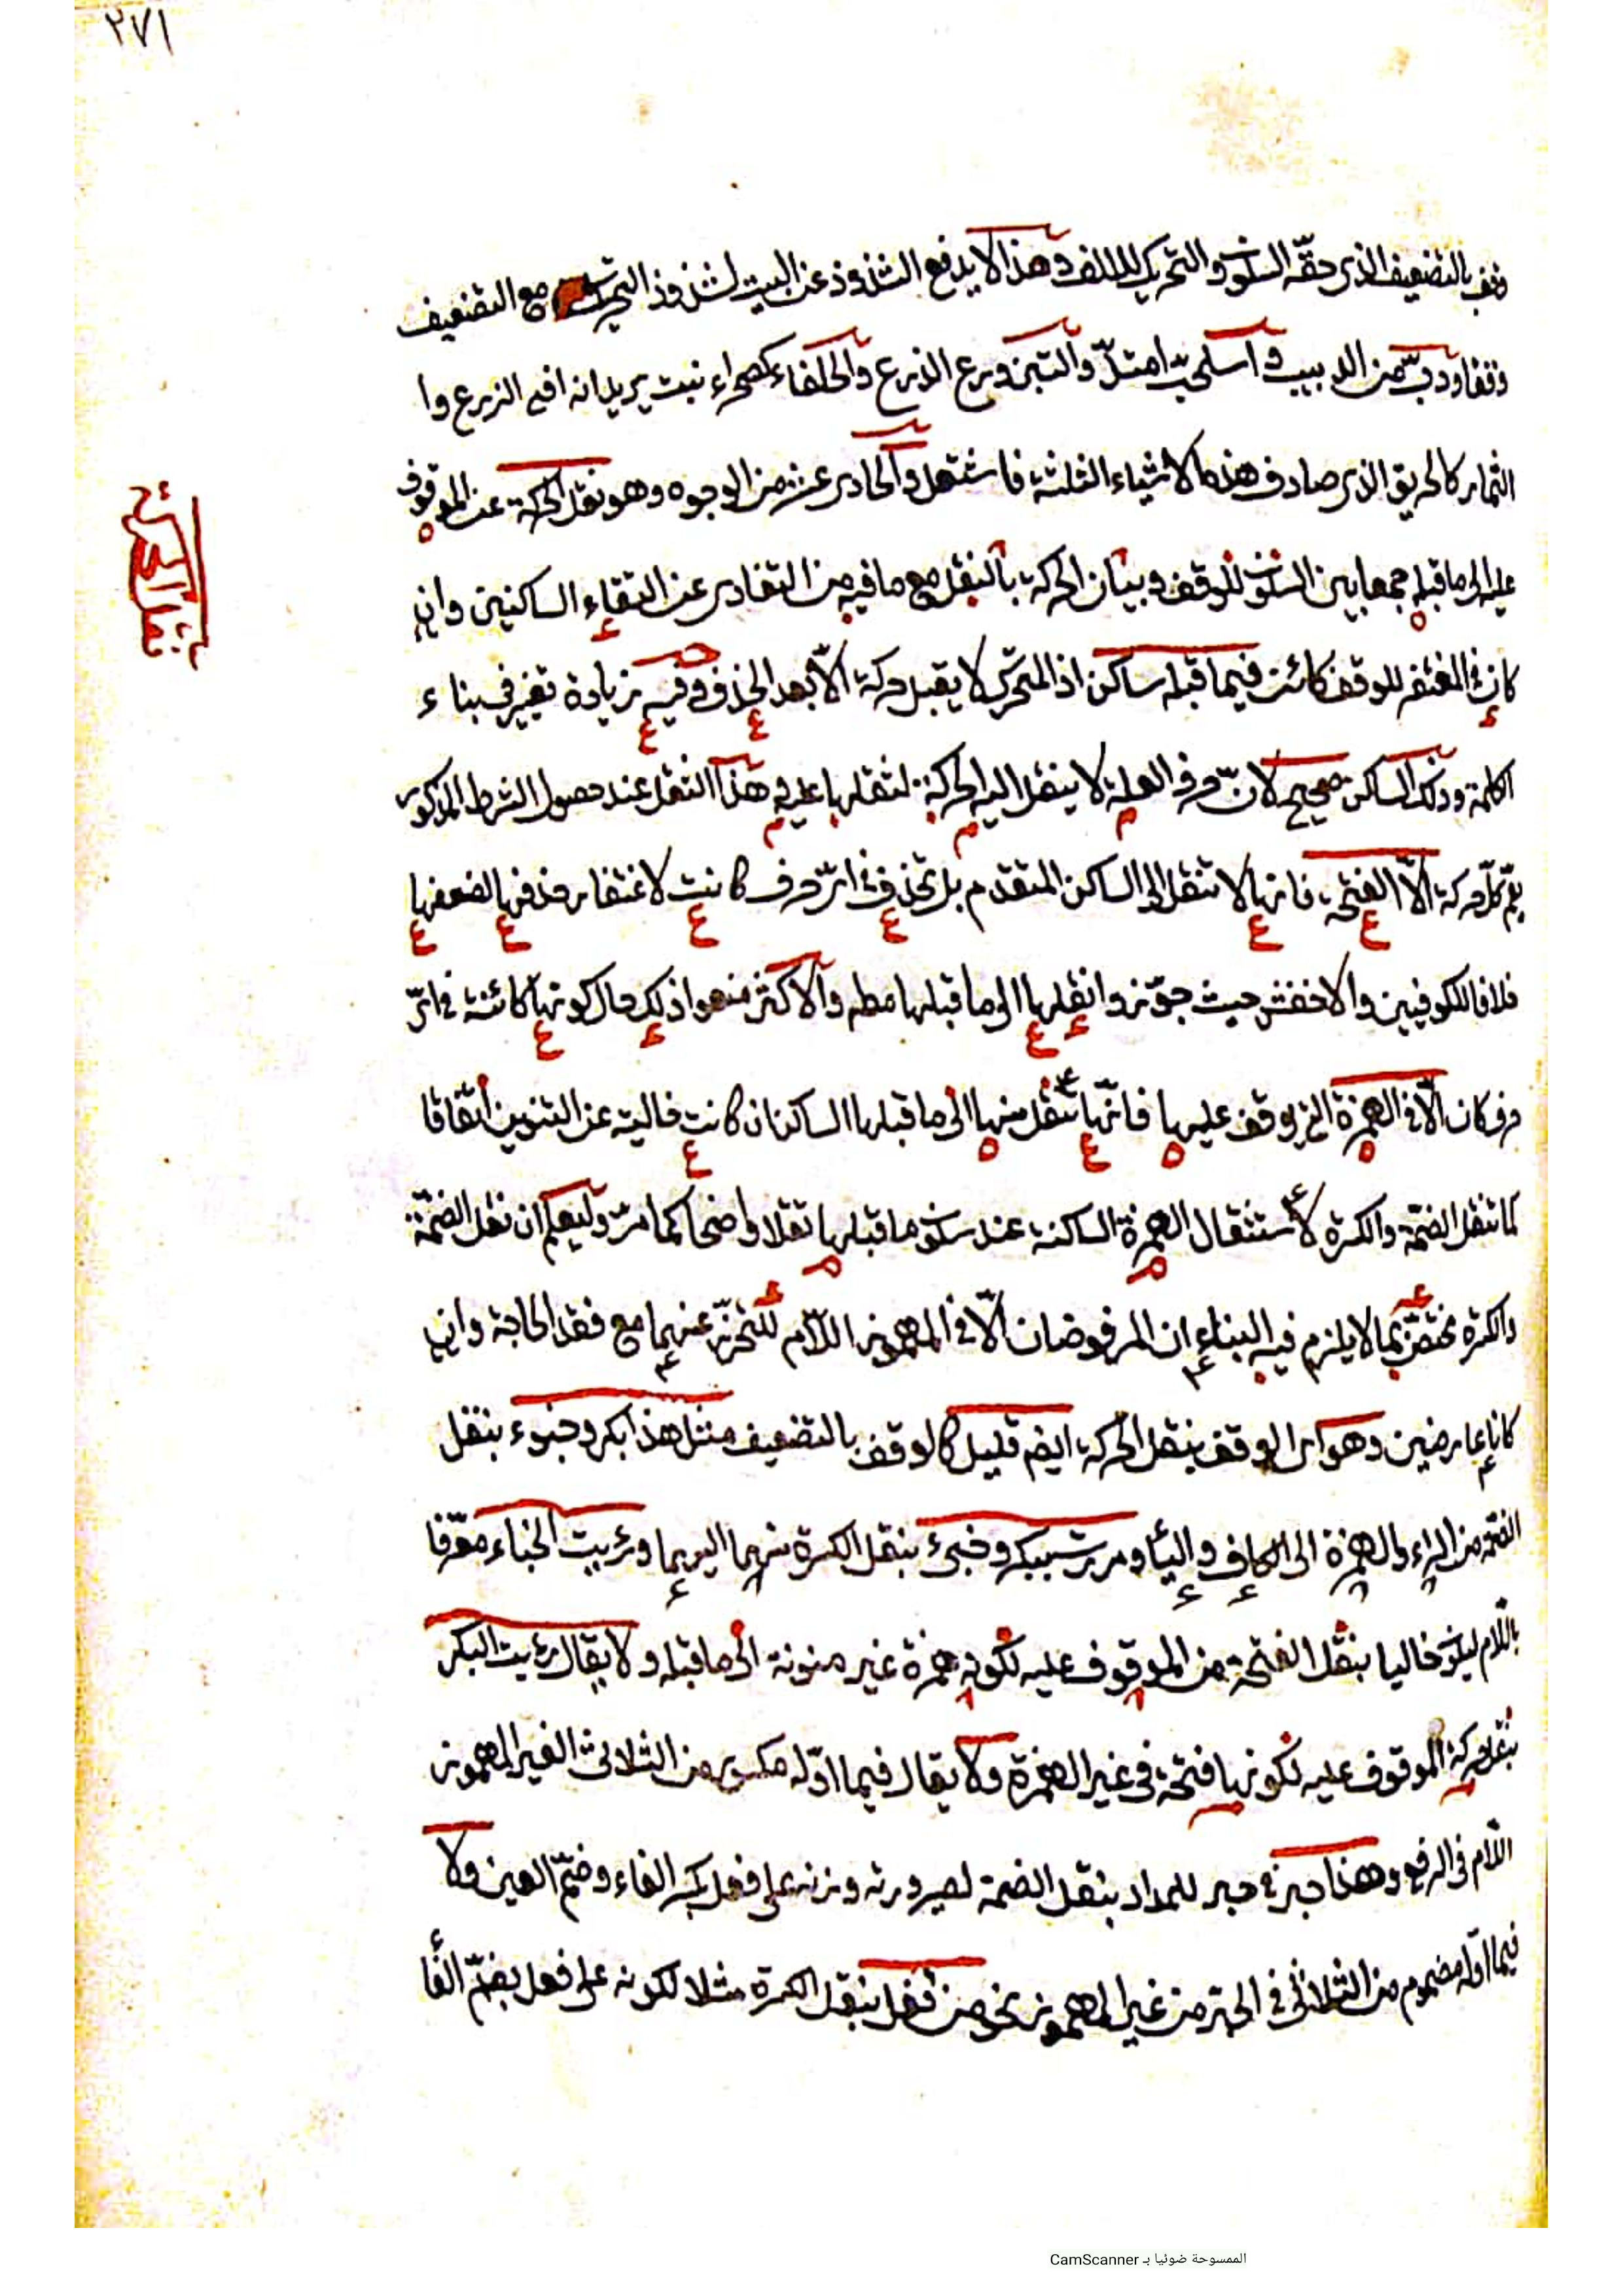 ٢٧١
وقف بالتضعيف الذى حقّه السكون والتحريك للالف وهذا لا يدفع الشذوذ عن البيت لشذوذ التحريك مع التضعيف
وقفا ودبّ من الدبيب واسلحبّ امتدّ والتبن وبرع الزرع والحلفاء كصحراء نبت يريد انه افنى الزرع وا
الثمار كالحريق الذى صادف هذه الاشياء الثلثة فاشتعل والحادى عشر من الوجوه وهو نقل الحركة عن الموقوف
عليه الى ما قبله جمعا بين السكون للوقف وبيان الحركة بالنقل مع ما فيه من التفادى عن التقاء الساكنين وان
كان المغتفر للوقف كائن فيما قبله ساكن اذ المتحرّك لا يقبل حركة الّا بعد الحذف وفيه زيادة تغيير فى بناء
الكلمة وذلك الساكن صحيح لانّ حرف العلة لا ينقل اليه الحركة لثقلها عليه هذا النقل عند حصول الشرط المذكور
يعمّ كلّ حركة الّا الفتحة فانها لا تنقل الى الساكن المتقدم بل تحذف فى اىّ حرف كانت لاغتفار حذفها لضعفها
خلافا للكوفيين والاخفش حيث جوّزوا نقلها الى ما قبلها مطلقا والاكثر منعوا ذلك حال كونها كائنة فى اىّ
حرف كان الّا فى الهمزة التى يوقف عليها فانّها تنقل منها الى ما قبلها الساكن ان كانت خالية عن التنوين اتفاقا
كما تنقل الضمّة والكسرة لاستثقال الهمزة الساكنة عند سكون ما قبلها ثقلا واضحا كما مرّ وليعلم ان نقل الضمّة
والكسرة مختصّ بما لا يلزم فيه البناءان المرفوضان الّا فى المهموز اللّام للتحرّز عنهما مع فقد الحاجة وان
كانا عارضين وهو اى الوقف بنقل الحركة ايضا قليل كالوقف بالتضعيف مثل هذا بكر وخبوء بنقل
الضمّة من الراء والهمزة الى الكاف والباء ومررت ببكر وخبئ بنقل الكسرة منهما اليهما ورئيت الخباء معرّفا
باللّام ليكون خاليا بنقل الفتحة من الموقوف عليه لكونه همزة غير منونة الى ما قبله ولا يقال رئيت البكر
بنقل حركة الموقوف عليه لكونها فتحة فى غير الهمزة ولا يقال فيما اوّله مكسور من الثلاثى الغير المهموز
اللّام فى الرفع وهذا حبر فى حبر للمداد بنقل الضمة لصيرورته وزنه على فعل بكسر الفاء وضمّ العين ولا
فيما اوّله مضموم من الثلاثى فى الجرّ من غير المهموز نحو من قفل بنقل الكسرة مثلا لكونه على فعل بضمّ الفا
الممسوحة ضوئيا بـ CamScanner